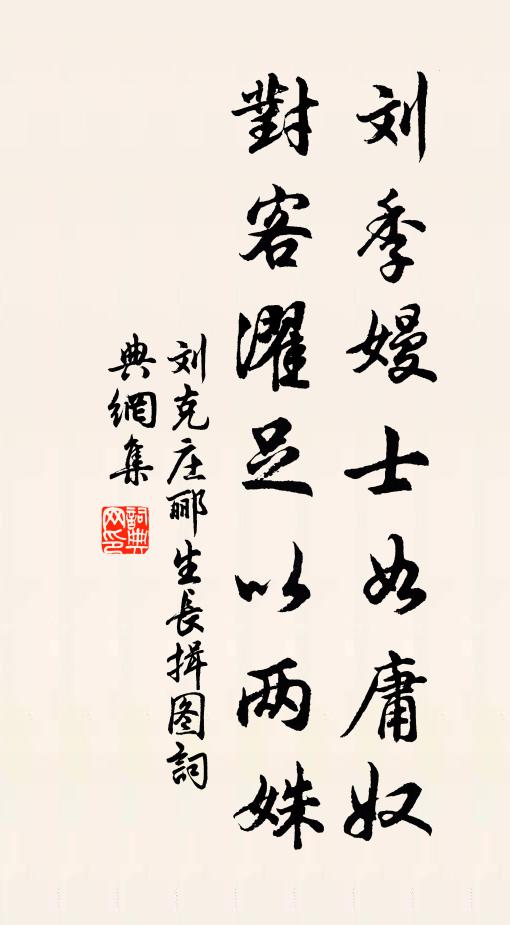 刘季嫚士如庸奴
對客濯足以两姝
刘克庄郦生長揖图詞
典網集
詞典网印